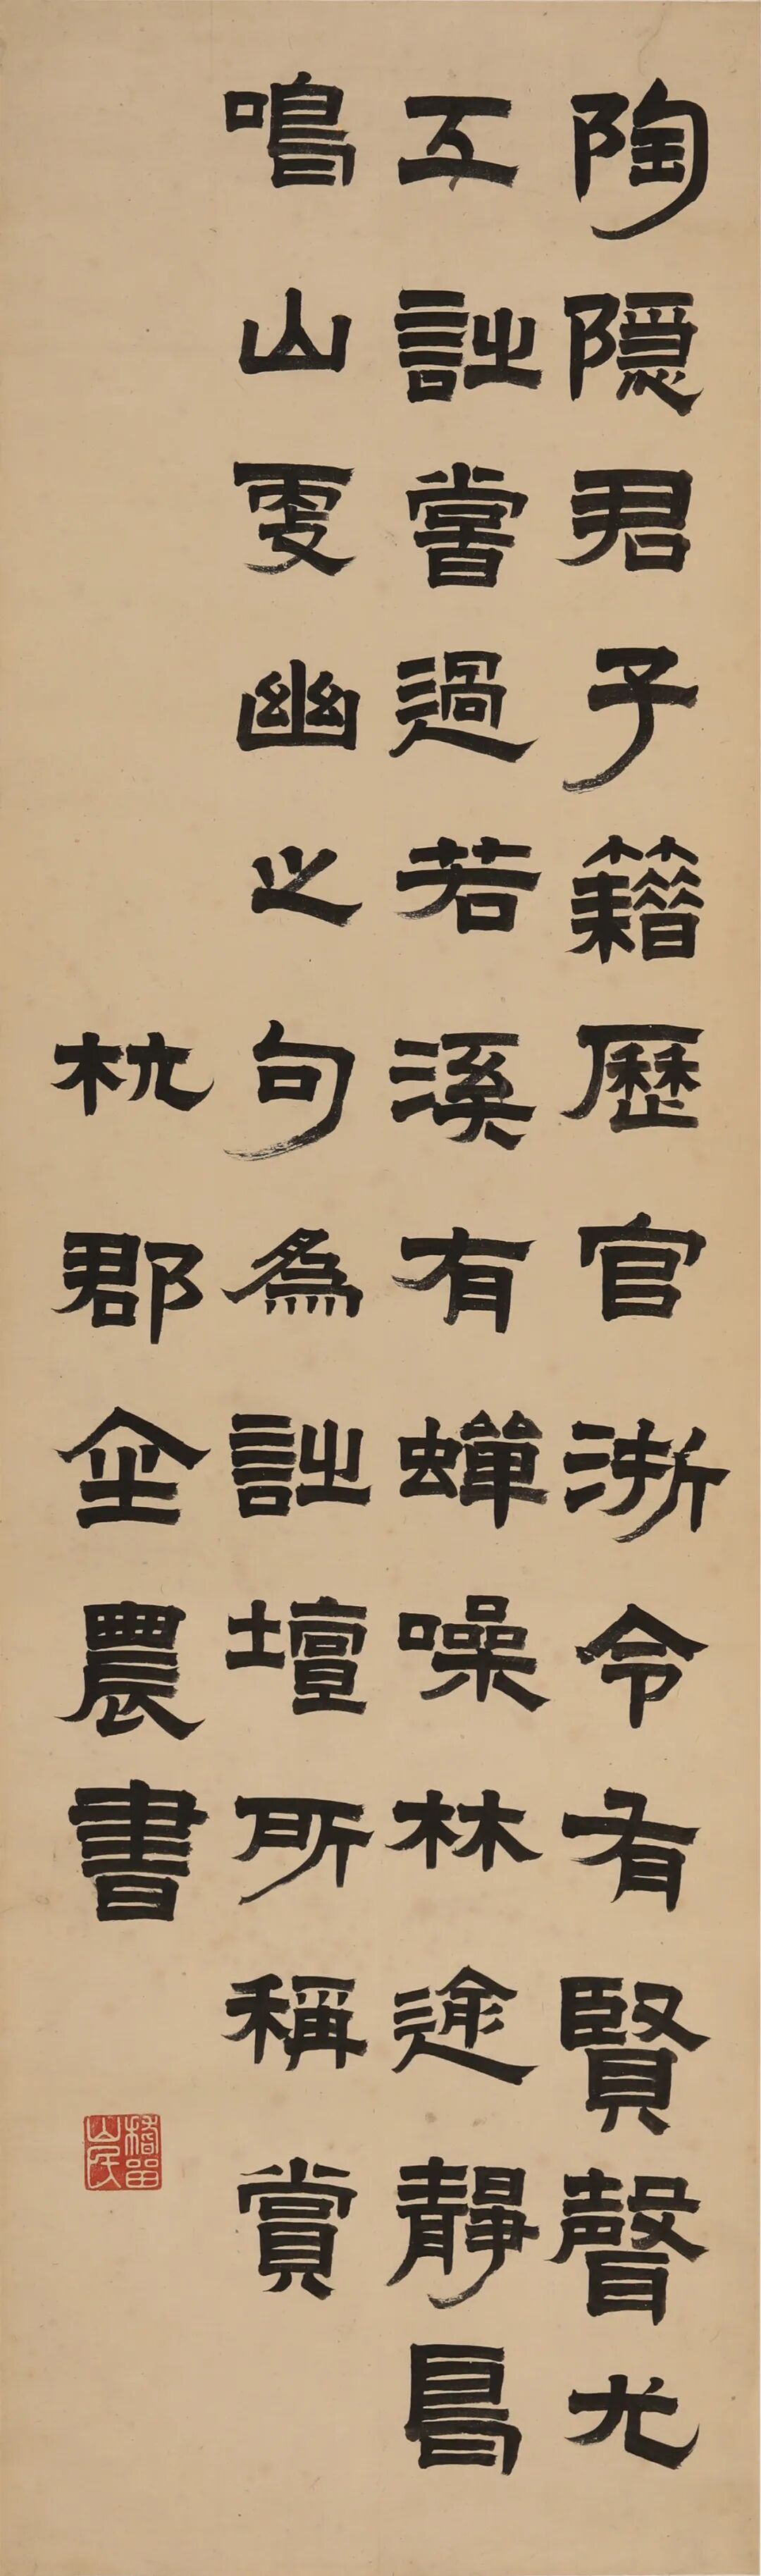 陶隱君子籍歷官浙令有賢聲尤
工詩嘗過若溪有蟬噪林逾靜鳥
鳴山更幽之句為詩壇所稱賞
杭郡金農書
稽留山民